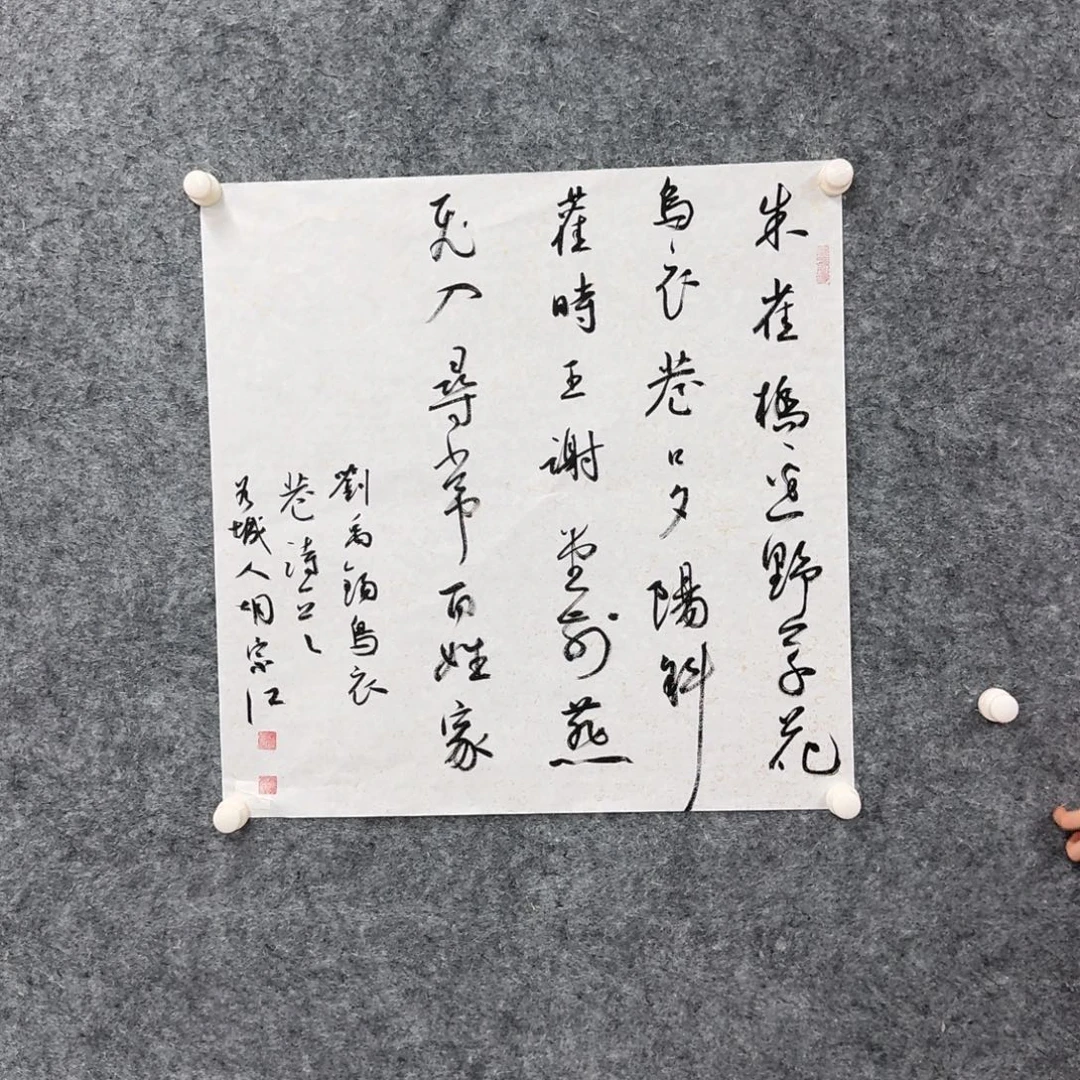 朱雀橋邊野草花
烏衣巷口夕陽斜
舊時王謝堂前燕
飛入尋常百姓家
劉禹錫烏衣
巷詩一
城人胡宗江